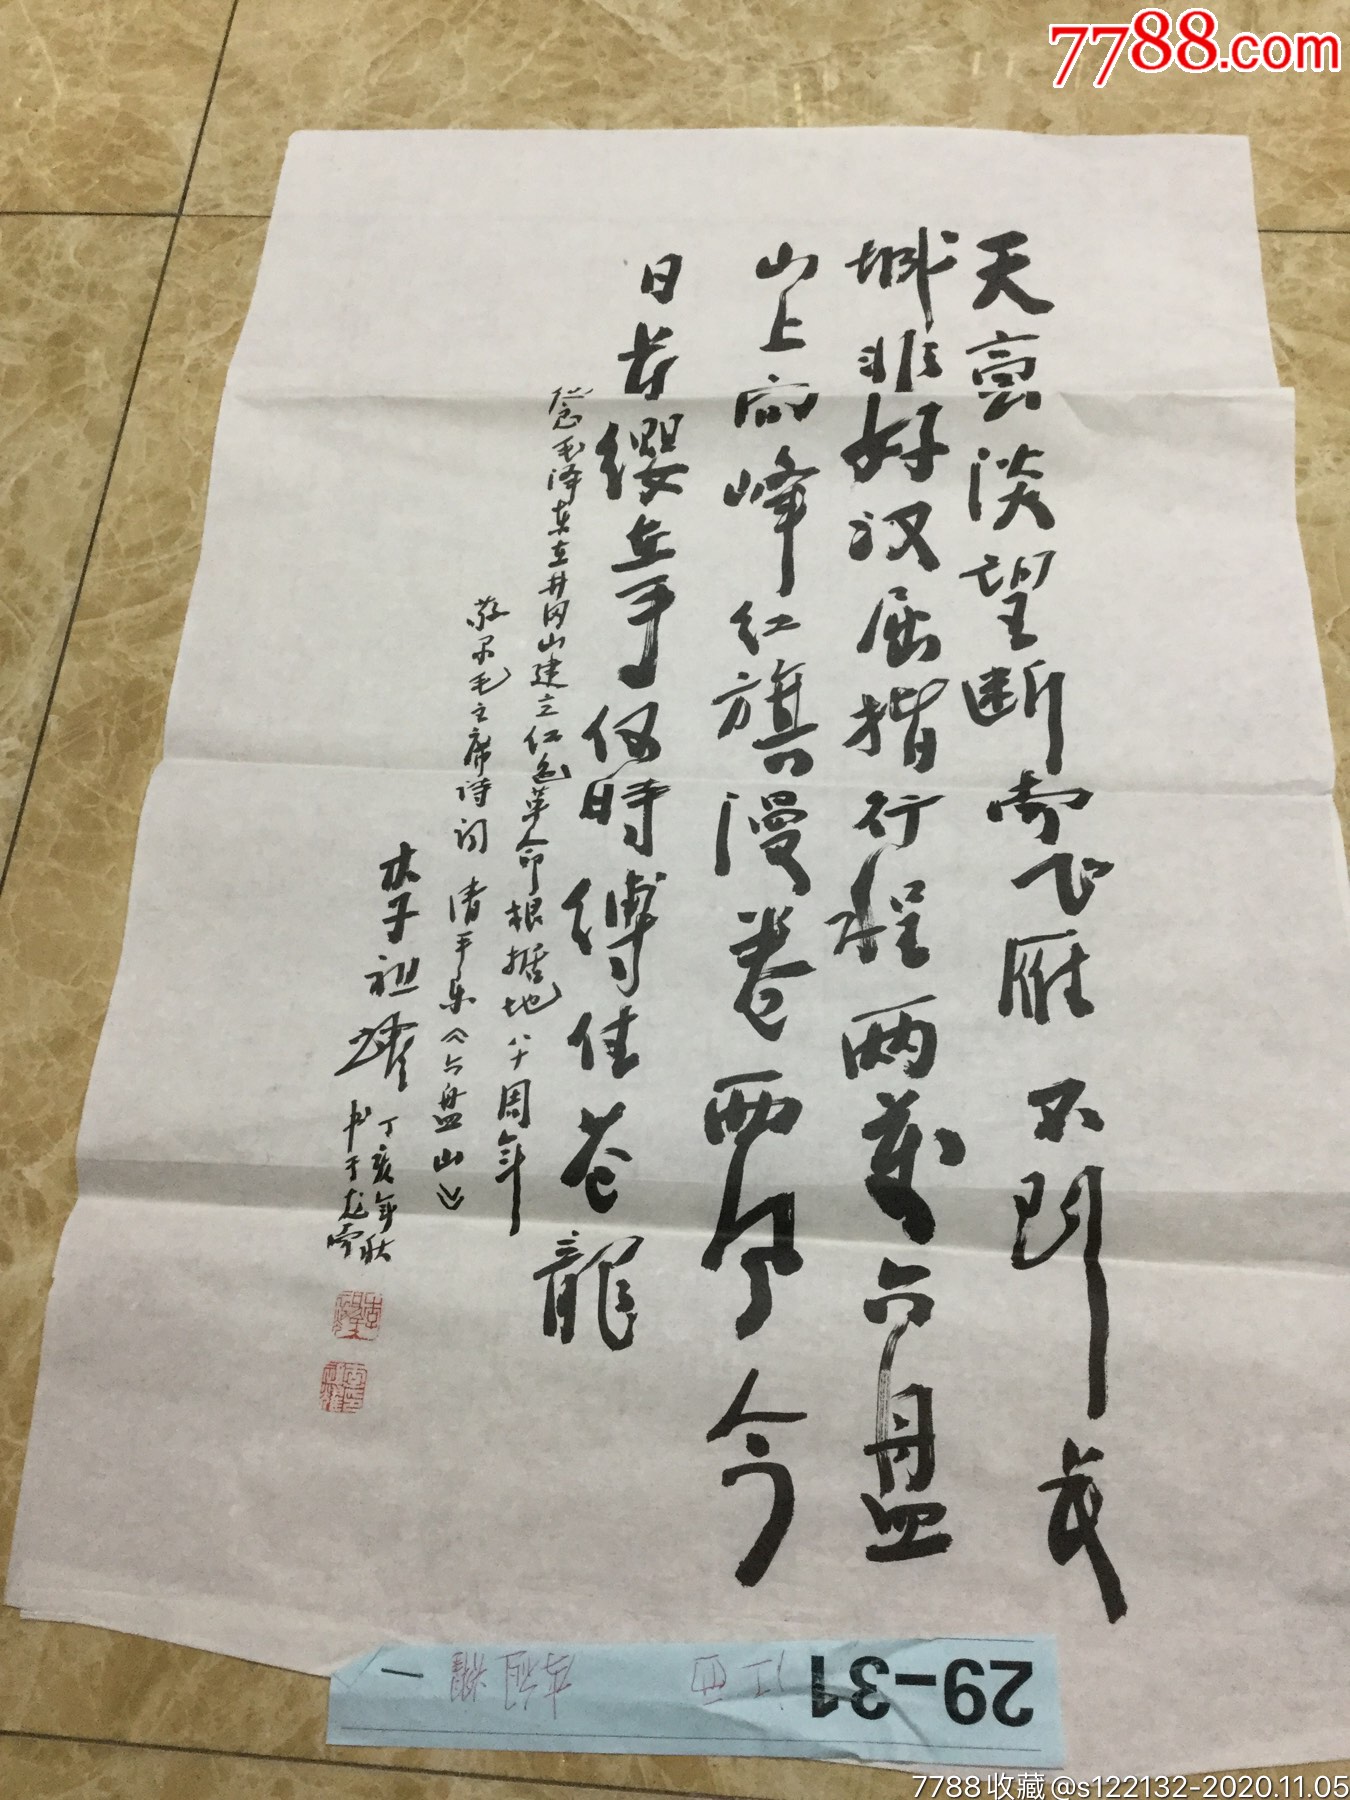 7788.com
天高雲淡望断南飞雁不到长
城非好汉屈指行程两萬六盘
山上高峰红旗漫卷西风今
日长缨在手何時缚住苍龍
纪念毛泽东在井冈山建立红色革命根据地八十周年
敬录毛主席诗词 清平乐《六盘山》
祖耀
丁亥年秋
书于龙南
29-31 江西 祖耀 一
7788收藏@s122132-2020.11.05